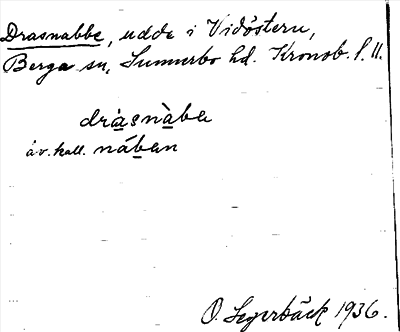 Drasnabbe, udde i Vidöstern,
Berga sn, Sunnerbo hd. Kronob. l. 11.
dràsnàbe
äv. kall. nában
O. Segerbäck 1936.